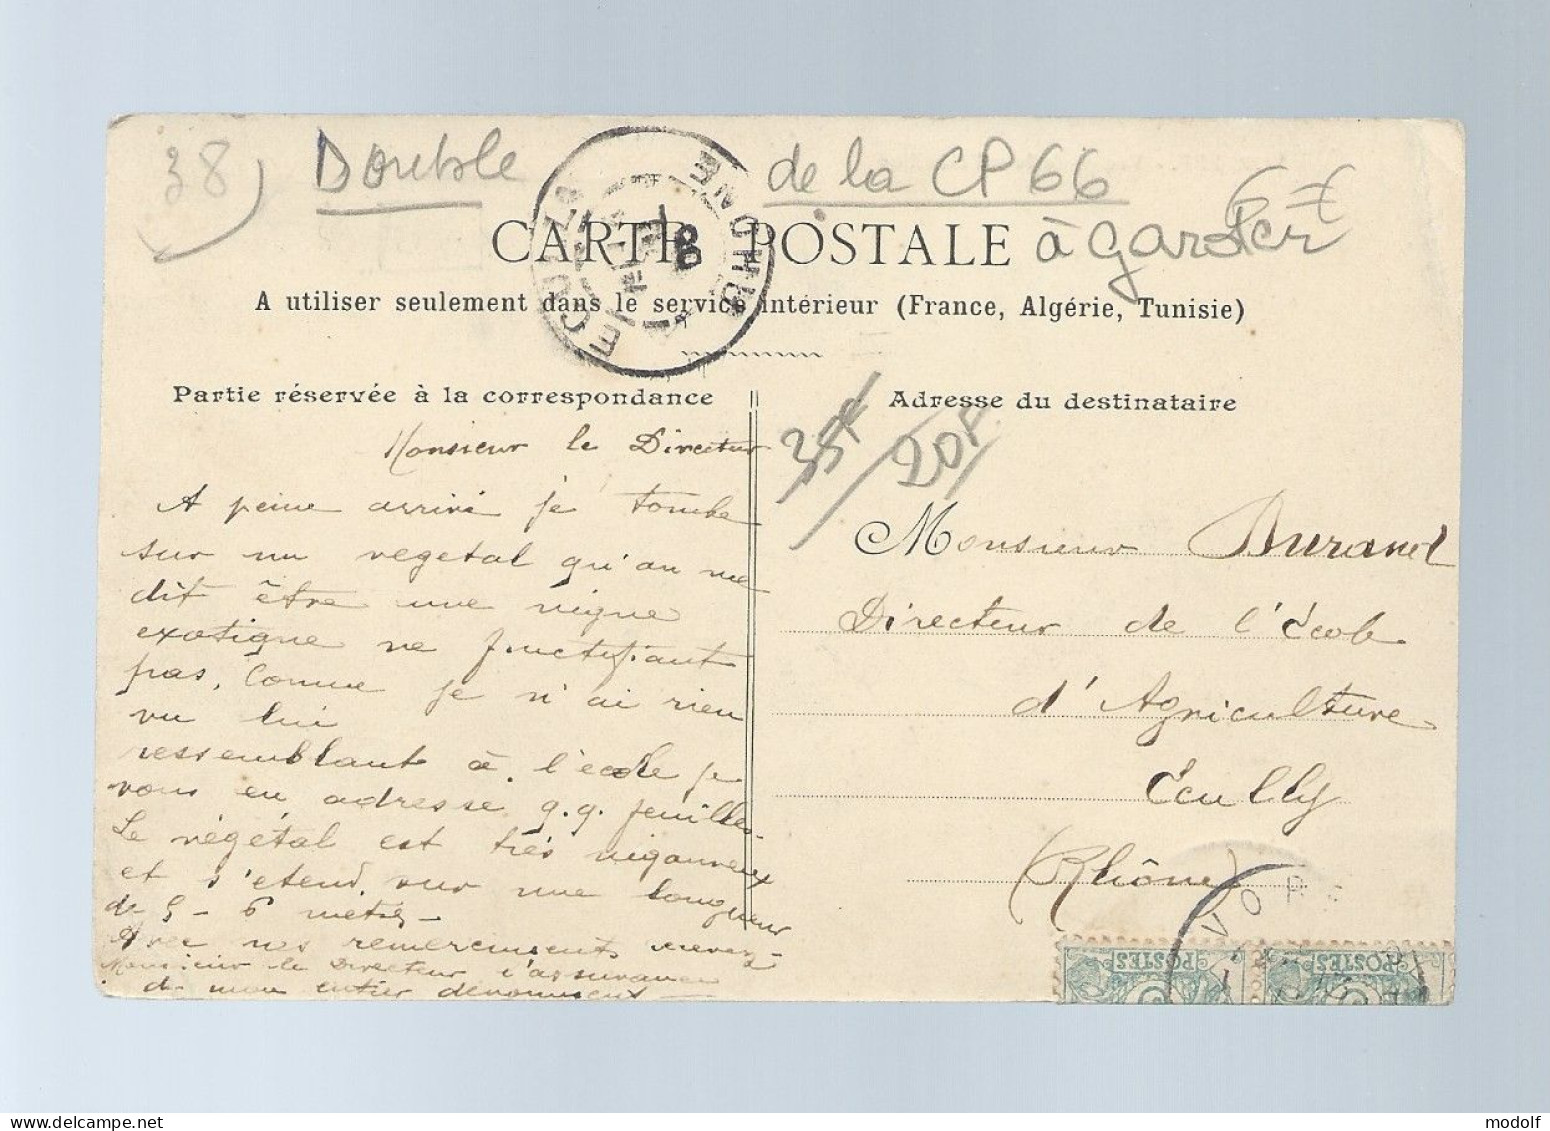 38) Double de la CP 66
CARTE POSTALE à garder
A utiliser seulement dans le service intérieur (France, Algérie, Tunisie)
ECULLY
RHONE
Partie réservée à la correspondance
Monsieur le Directeur
A peine arrivé je tombe
sur un vegetal qu'on me
dit être une vigne
exotique ne fructifiant
pas. Comme je n'ai rien
vu lui
ressemblant à l'école je
vous en adresse q.q. feuilles.
Le végétal est très vigoureux
et s'etend sur une longueur
de 5 - 6 mètres -
Avec mes remerciements recevez
Monsieur le Directeur l'assurance
de mon entier dévouement
Adresse du destinataire
35F
20F
Monsieur Durand
Directeur de l'école
d'Agriculture
Écully
(Rhône)
VO
POSTES
POSTES
modolf